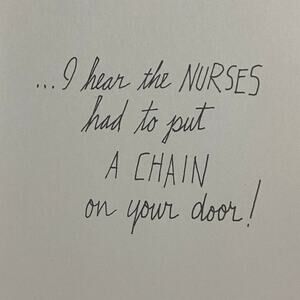 ...I hear the NURSES
had to put
A CHAIN
on your door!